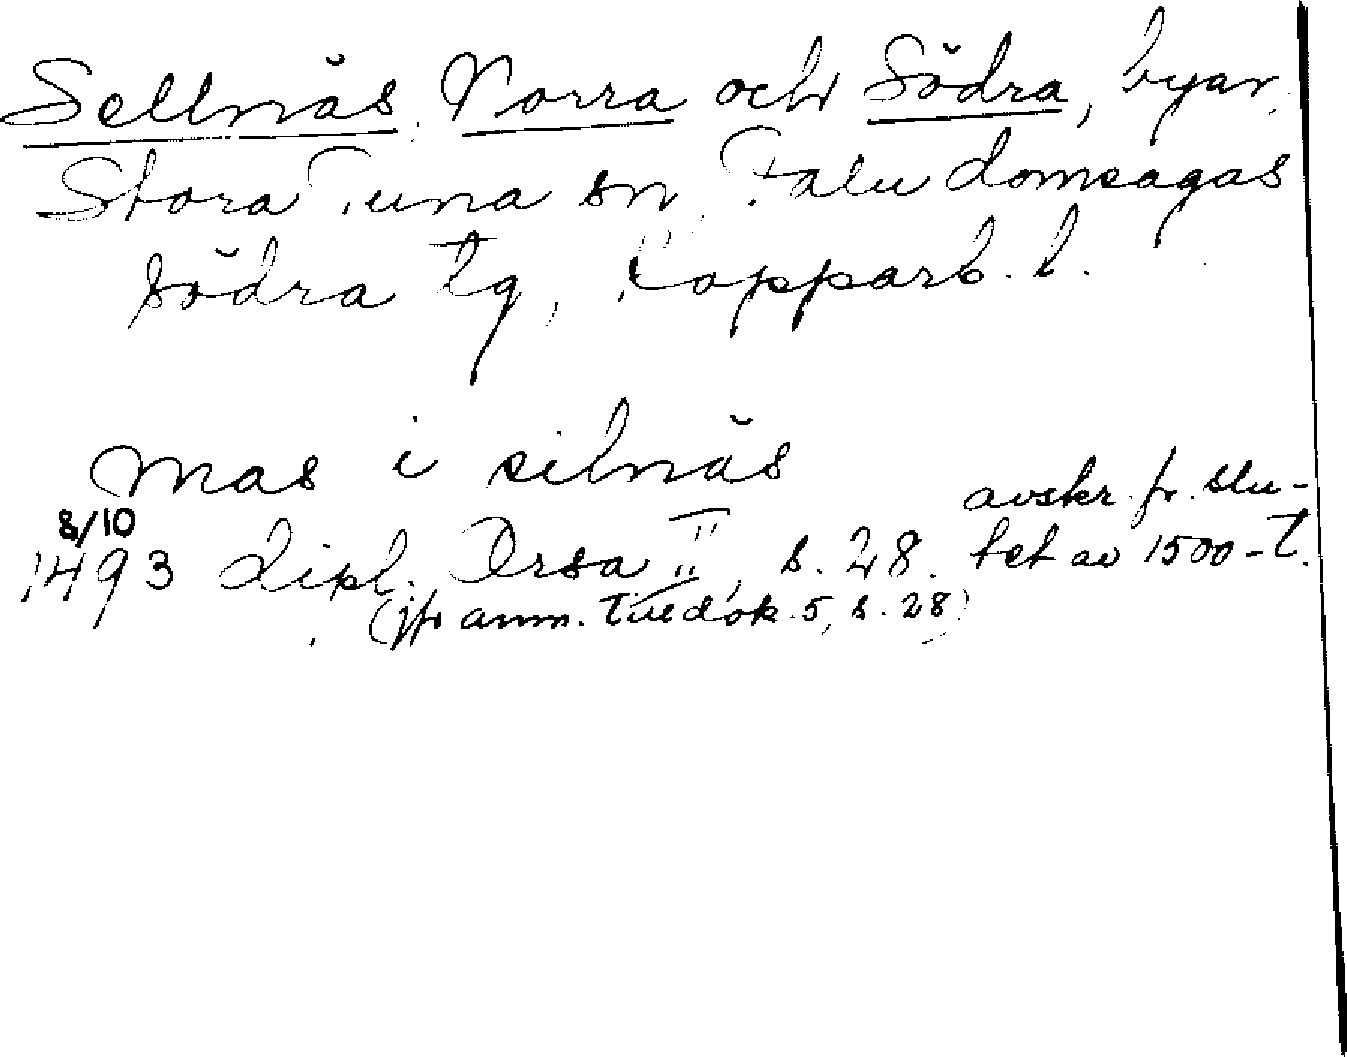 Sellnäs, Norra och Södra, byar,
Stora Tuna sn, Falu domsagas
södra tg, Kopparb. l.
mas i silnäs
8/10
1493 Dipl. Orsa II, s. 28. avskr. fr. slu-
tet av 1500-t.
(jfr anm. till dok. 5, s. 28)